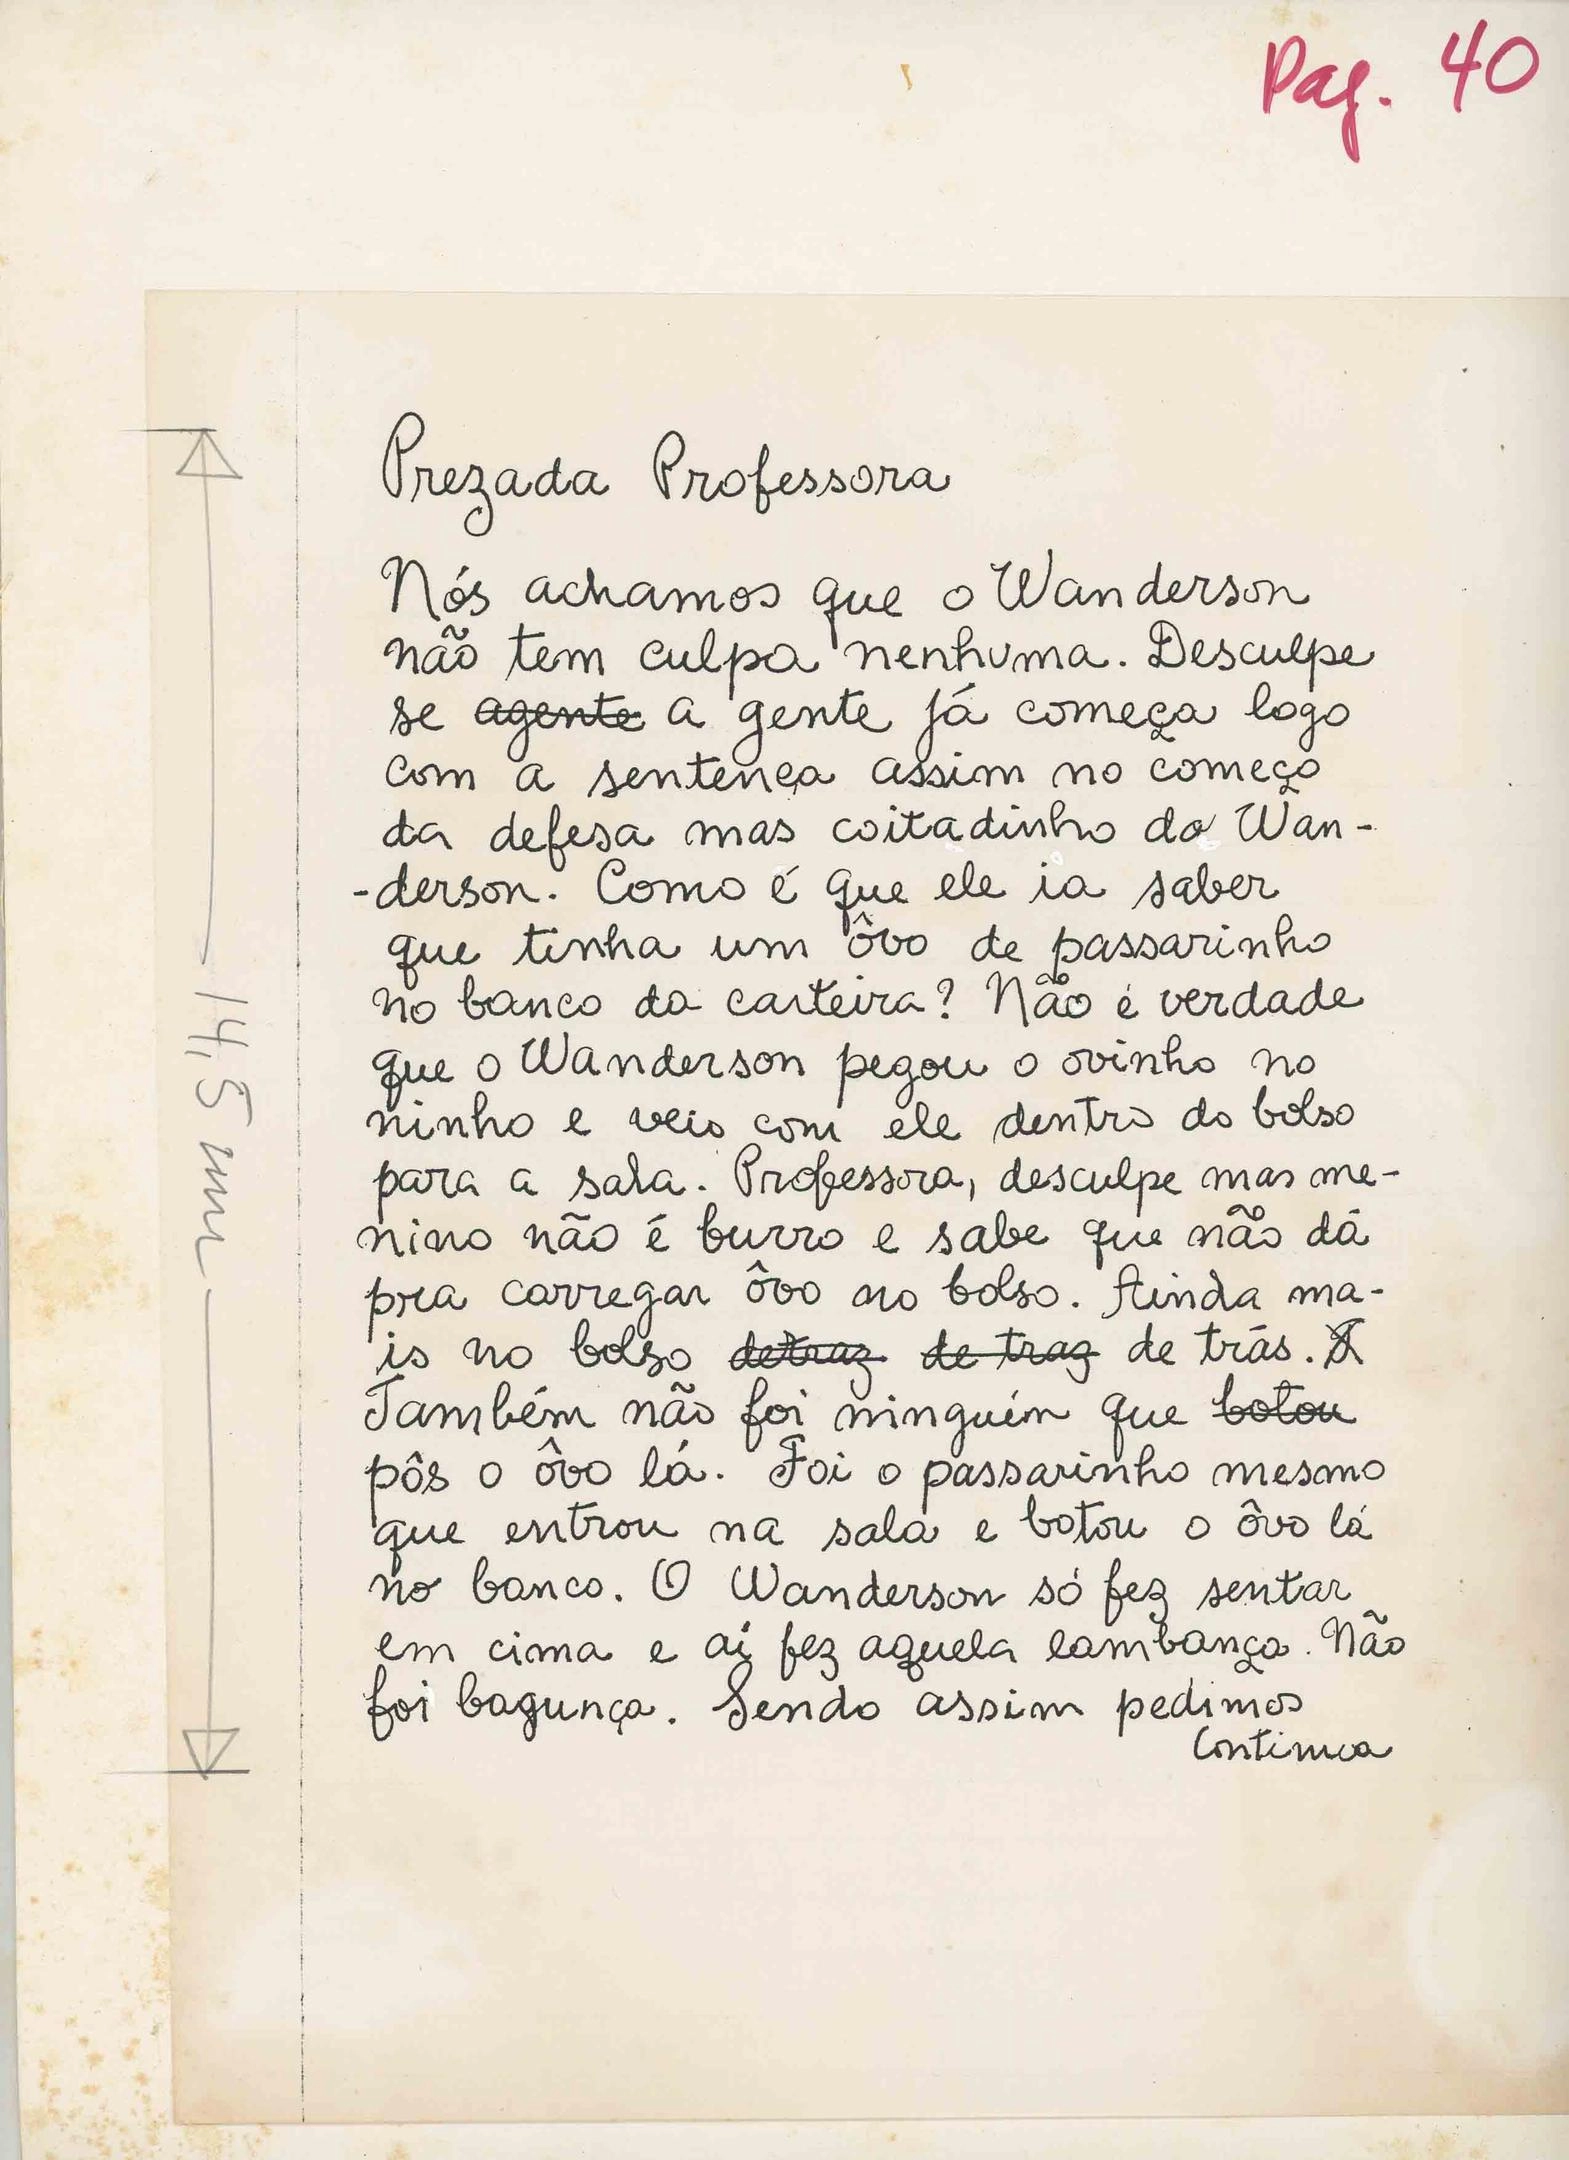 Pag. 40
Prezada Professora
Nós achamos que o Wanderson
não tem culpa nenhuma. Desculpe
se agente a gente já começa logo
com a sentença assim no começo
da defesa mas coitadinho do Wan-
-derson. Como é que ele ia saber
que tinha um ôvo de passarinho
no banco da carteira? Não é verdade
que o Wanderson pegou o ovinho no
ninho e veio com ele dentro do bolso
para a sala. Professora, desculpe mas me-
nino não é burro e sabe que não dá
pra carregar ôvo no bolso. Ainda ma-
is no bolso detraz de traz de trás. T
Também não foi ninguém que botou
pôs o ôvo lá. Foi o passarinho mesmo
que entrou na sala e botou o ôvo lá
no banco. O Wanderson só fez sentar
em cima e aí fez aquela lambança. Não
foi bagunça. Sendo assim pedimos
Continua
14,5 cm